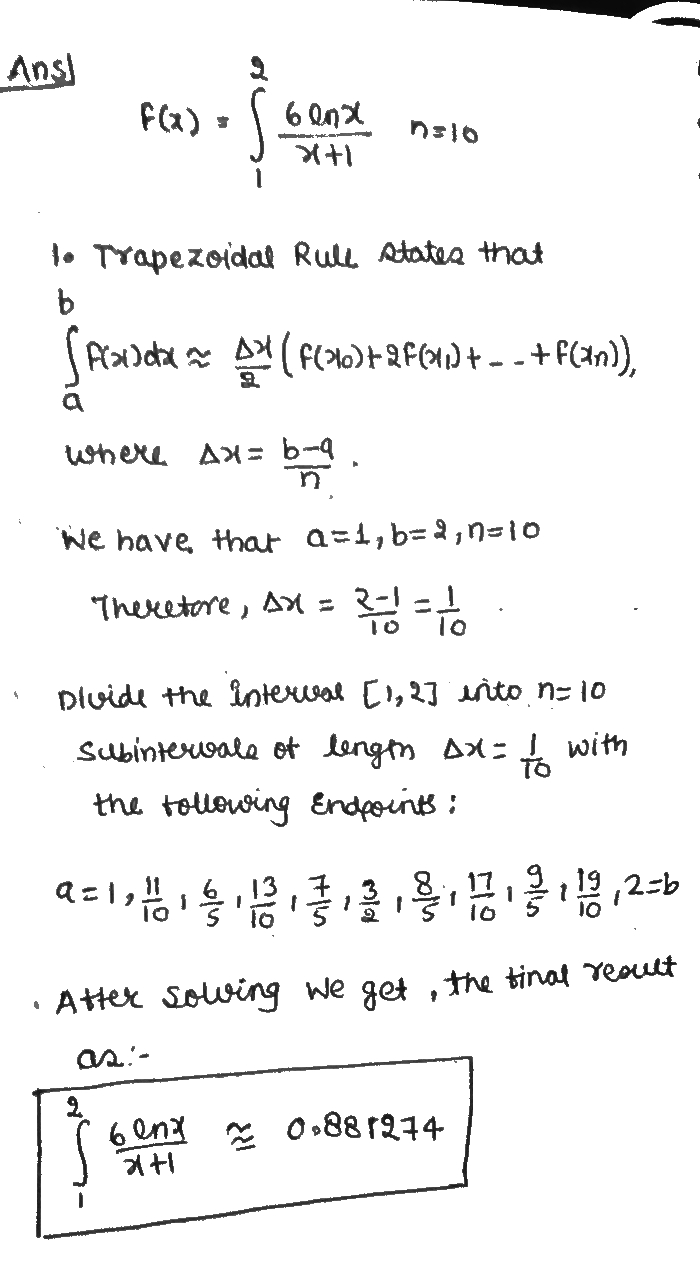 Ans
F(x) = ∫₁² 6 lnx / x+1 n=10
1. Trapezoidal Rule states that
∫ₐᵇ f(x)dx ≈ Δx/2 (f(x₀)+2f(x₁)+--+f(xₙ)),
where Δx = b-a/n .
We have that a=1, b=2, n=10
Therefore, Δx = 2-1/10 = 1/10
Divide the interval [1,2] into n=10
Subintervals of length Δx = 1/10 with
the following Endpoints :
a=1, 11/10, 6/5, 13/10, 7/5, 3/2, 8/5, 17/10, 9/5, 19/10, 2=b
After solving we get, the final result
as:-
∫₁² 6 lnx / x+1 ≈ 0.881274